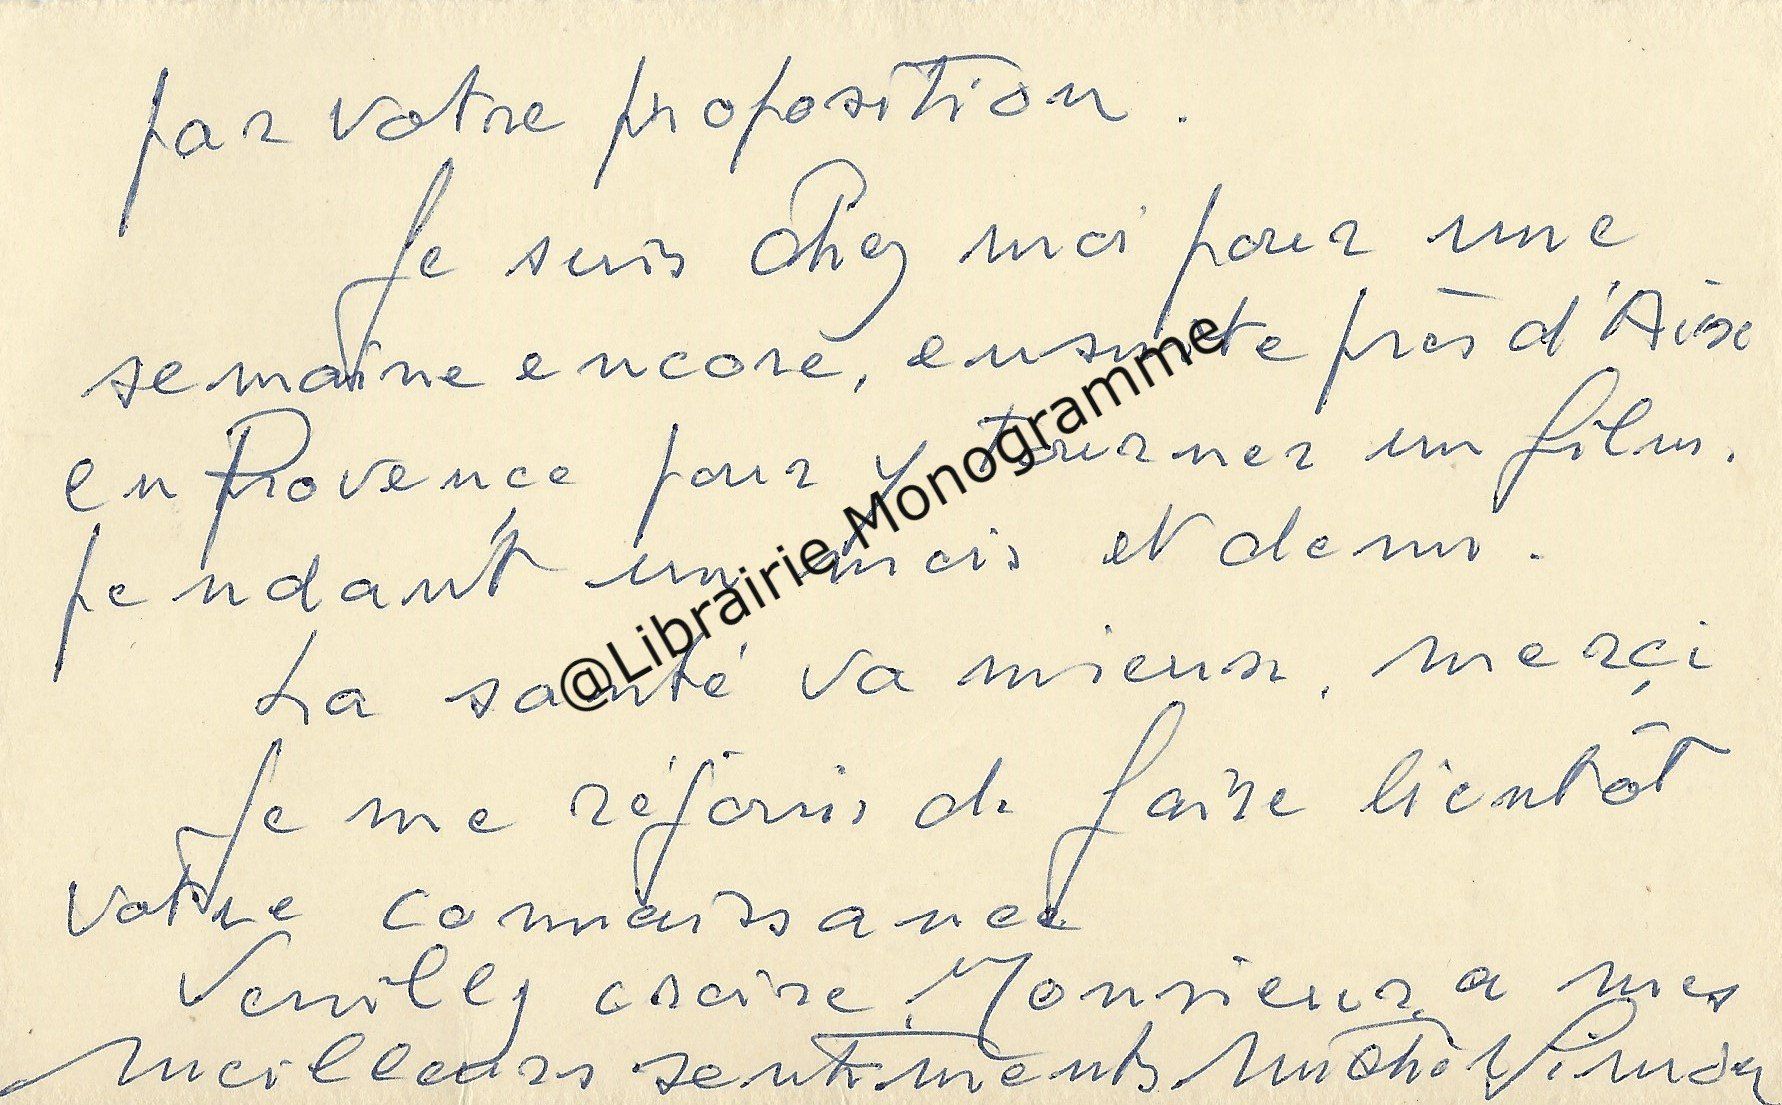 par votre proposition.
Je suis chez moi pour une
semaine encore, ensuite près d'Aix
en Provence pour y tourner un film.
pendant un mois et demi.
La santé va mieux, merçi
Je me réjouis de faire bientôt
votre connaissance
Veuillez croire, Monsieur, a mes
meilleurs sentiments Michel Simon
@Librairie Monogramme